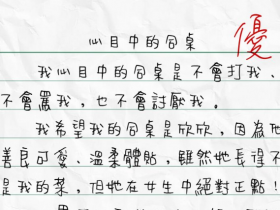 優
心目中的同桌
我心目中的同桌是不會打我、
不會罵我，也不會討厭我。
我希望我的同桌是欣欣，因為他
善良可愛、溫柔體貼，雖然她長得不
是我的菜，但她在女生中絕對正點！